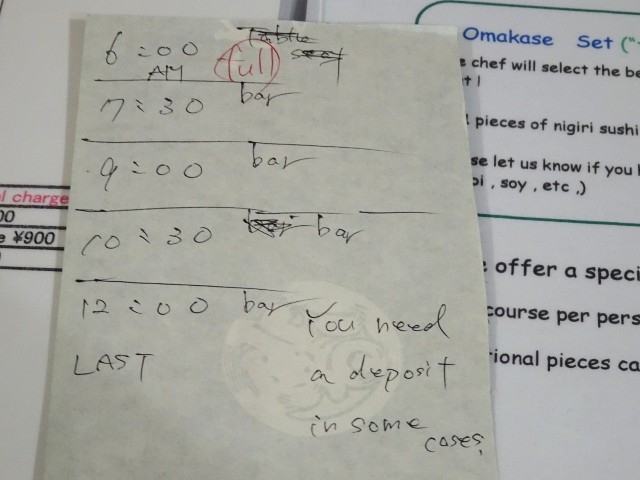 6:00 full
AM
7:30 bar
9:00 bar
10:30 bar
12:00 bar
LAST
You need
a deposit
in some
cases,
l charge
00
e ¥900
Omakase Set ("
e chef will select the be
it !
pieces of nigiri sushi
se let us know if you
bi , soy , etc ,)
offer a speci
course per pers
ional pieces ca